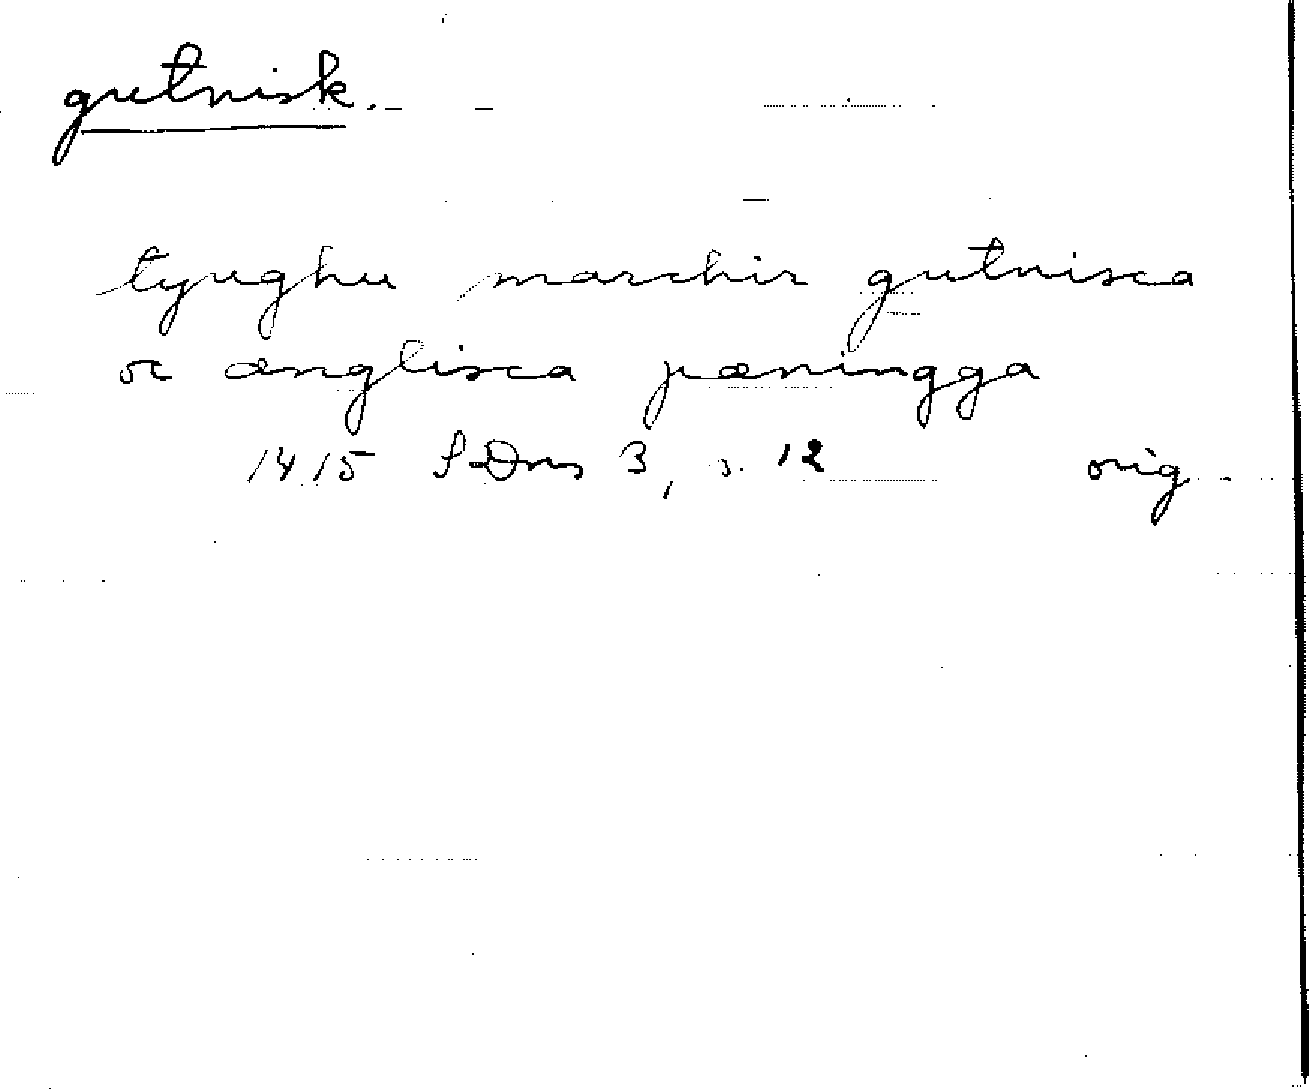 gutnisk.
tyughu marchir gutnisca
oc ænglisca pæningga
1415 SDns 3, s. 12 orig